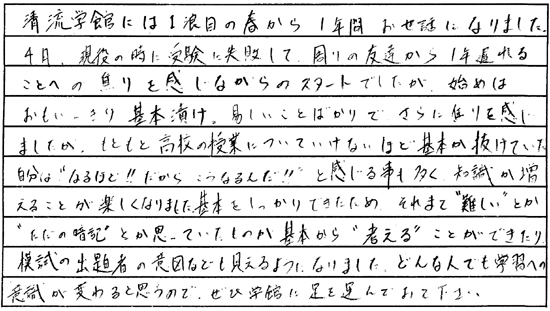 清流学館には1浪目の春から1年間お世話になりました。
4月、現役の時に受験に失敗して、周りの友達から1年遅れる
ことへの焦りを感じながらのスタートでしたが、始めは
おもいっきり基本漬け。易しいことばかりで、さらに焦りを感じ
ましたが、もともと高校の授業についていけないほど基本が抜けていた
自分は"なるほど!!だからこうなるんだ!!"と感じる事も多く、知識が増
えることが楽しくなりました。基本をしっかりできたため、それまで"難しい"とか
"ただの暗記"とか思っていたものが基本から"考える"ことができたり、
模試の出題者の意図なども見えるようになりました。どんな人でも学習への
意識が変わると思うので、ぜひ学館に足を運んでみて下さい。